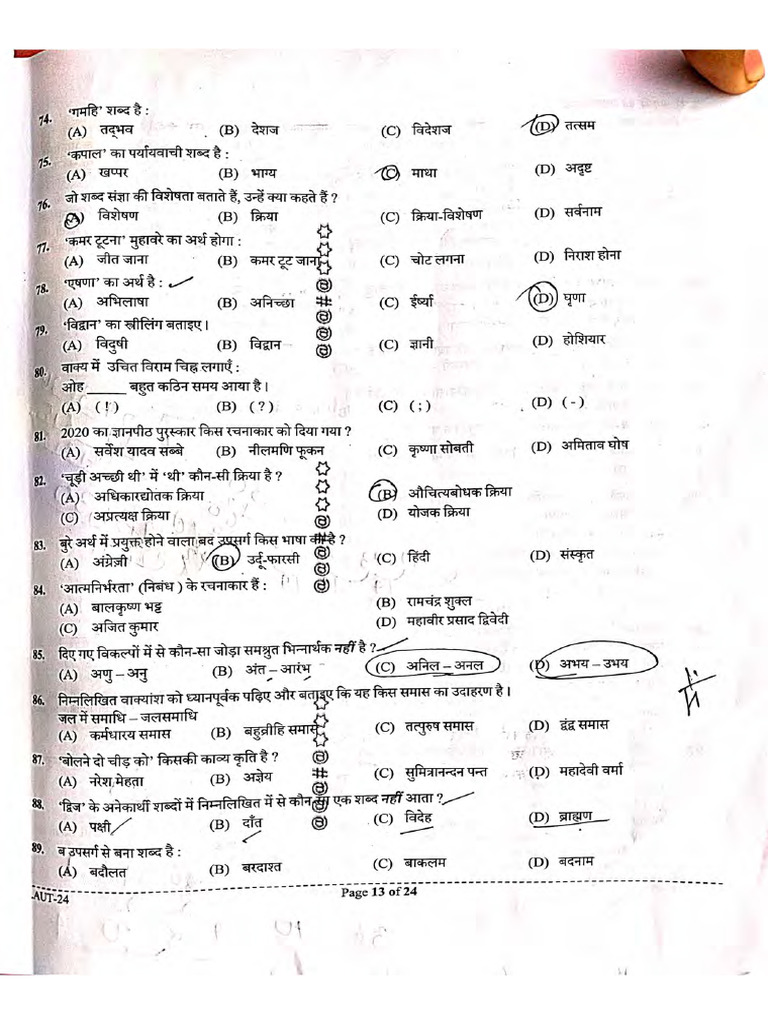 74. 'गमहि' शब्द है :
(A) तद्भव (B) देशज (C) विदेशज (D) तत्सम
75. 'कपाल' का पर्यायवाची शब्द है :
(A) खप्पर (B) भाग्य (C) माथा (D) अदृष्ट
76. जो शब्द संज्ञा की विशेषता बताते हैं, उन्हें क्या कहते हैं ?
(A) विशेषण (B) क्रिया (C) क्रिया-विशेषण (D) सर्वनाम
77. 'कमर टूटना' मुहावरे का अर्थ होगा :
(A) जीत जाना (B) कमर टूट जाना (C) चोट लगना (D) निराश होना
78. 'एषणा' का अर्थ है :
(A) अभिलाषा (B) अनिच्छा (C) ईर्ष्या (D) घृणा
79. 'विद्वान' का स्त्रीलिंग बताइए।
(A) विदुषी (B) विद्वान (C) ज्ञानी (D) होशियार
80. वाक्य में उचित विराम चिह्न लगाएँ :
ओह ______ बहुत कठिन समय आया है।
(A) ( ! ) (B) ( ? ) (C) ( ; ) (D) ( - )
81. 2020 का ज्ञानपीठ पुरस्कार किस रचनाकार को दिया गया ?
(A) सर्वेश यादव सब्बे (B) नीलमणि फूकन (C) कृष्णा सोबती (D) अमिताव घोष
82. 'चूड़ी अच्छी थी' में 'थी' कौन-सी क्रिया है ?
(A) अधिकारद्योतक क्रिया (B) औचित्यबोधक क्रिया
(C) अप्रत्यक्ष क्रिया (D) योजक क्रिया
83. बुरे अर्थ में प्रयुक्त होने वाला बद उपसर्ग किस भाषा का है ?
(A) अंग्रेज़ी (B) उर्दू-फारसी (C) हिंदी (D) संस्कृत
84. 'आत्मनिर्भरता' (निबंध) के रचनाकार हैं :
(A) बालकृष्ण भट्ट (B) रामचंद्र शुक्ल
(C) अजित कुमार (D) महावीर प्रसाद द्विवेदी
85. दिए गए विकल्पों में से कौन-सा जोड़ा समश्रुत भिन्नार्थक नहीं है ?
(A) अणु – अनु (B) अंत – आरंभ (C) अनिल – अनल (D) अभय – उभय
86. निम्नलिखित वाक्यांश को ध्यानपूर्वक पढ़िए और बताइए कि यह किस समास का उदाहरण है।
जल में समाधि – जलसमाधि
(A) कर्मधारय समास (B) बहुव्रीहि समास (C) तत्पुरुष समास (D) द्वंद्व समास
87. 'बोलने दो चीड़ को' किसकी काव्य कृति है ?
(A) नरेश मेहता (B) अज्ञेय (C) सुमित्रानन्दन पन्त (D) महादेवी वर्मा
88. 'द्विज' के अनेकार्थी शब्दों में निम्नलिखित में से कौन सा एक शब्द नहीं आता ?
(A) पक्षी (B) दाँत (C) विदेह (D) ब्राह्मण
89. ब उपसर्ग से बना शब्द है :
(A) बदौलत (B) बरदाश्त (C) बाकलम (D) बदनाम
AUT-24 Page 13 of 24